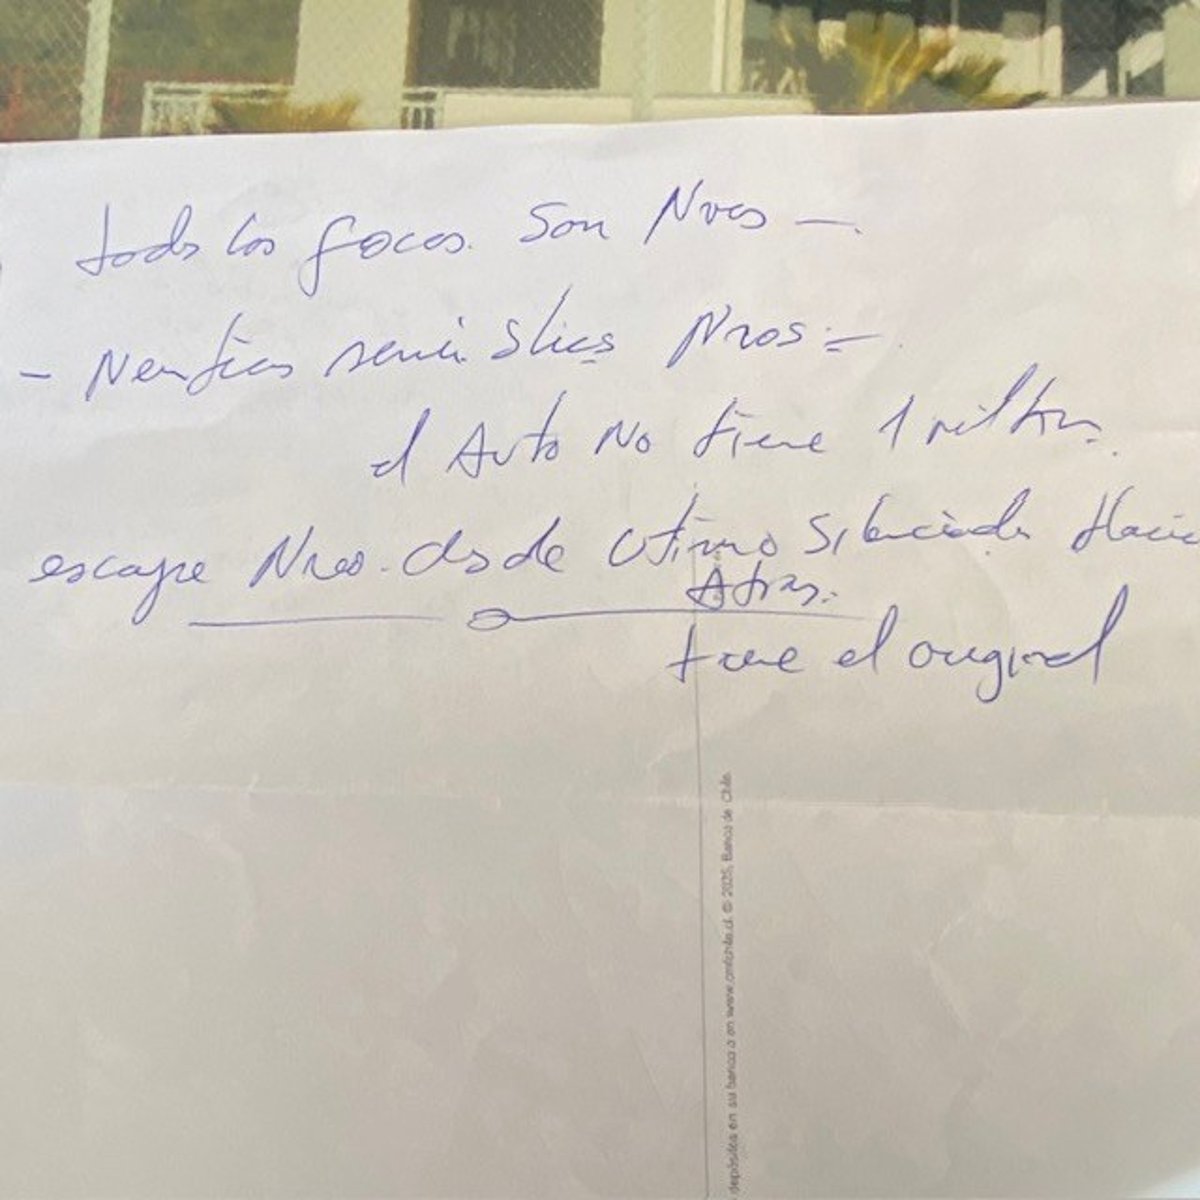 todos los focos son Nvos —.
- Neuticos semi Slics Nvos =
el Auto No tiene 1 rillton.
escape Nvo. desde Utimo Silenciador Hacia
Atras.
trae el original
depósitos en su banco o en www.cmfchile.cl. © 2025, Banco de Chile.